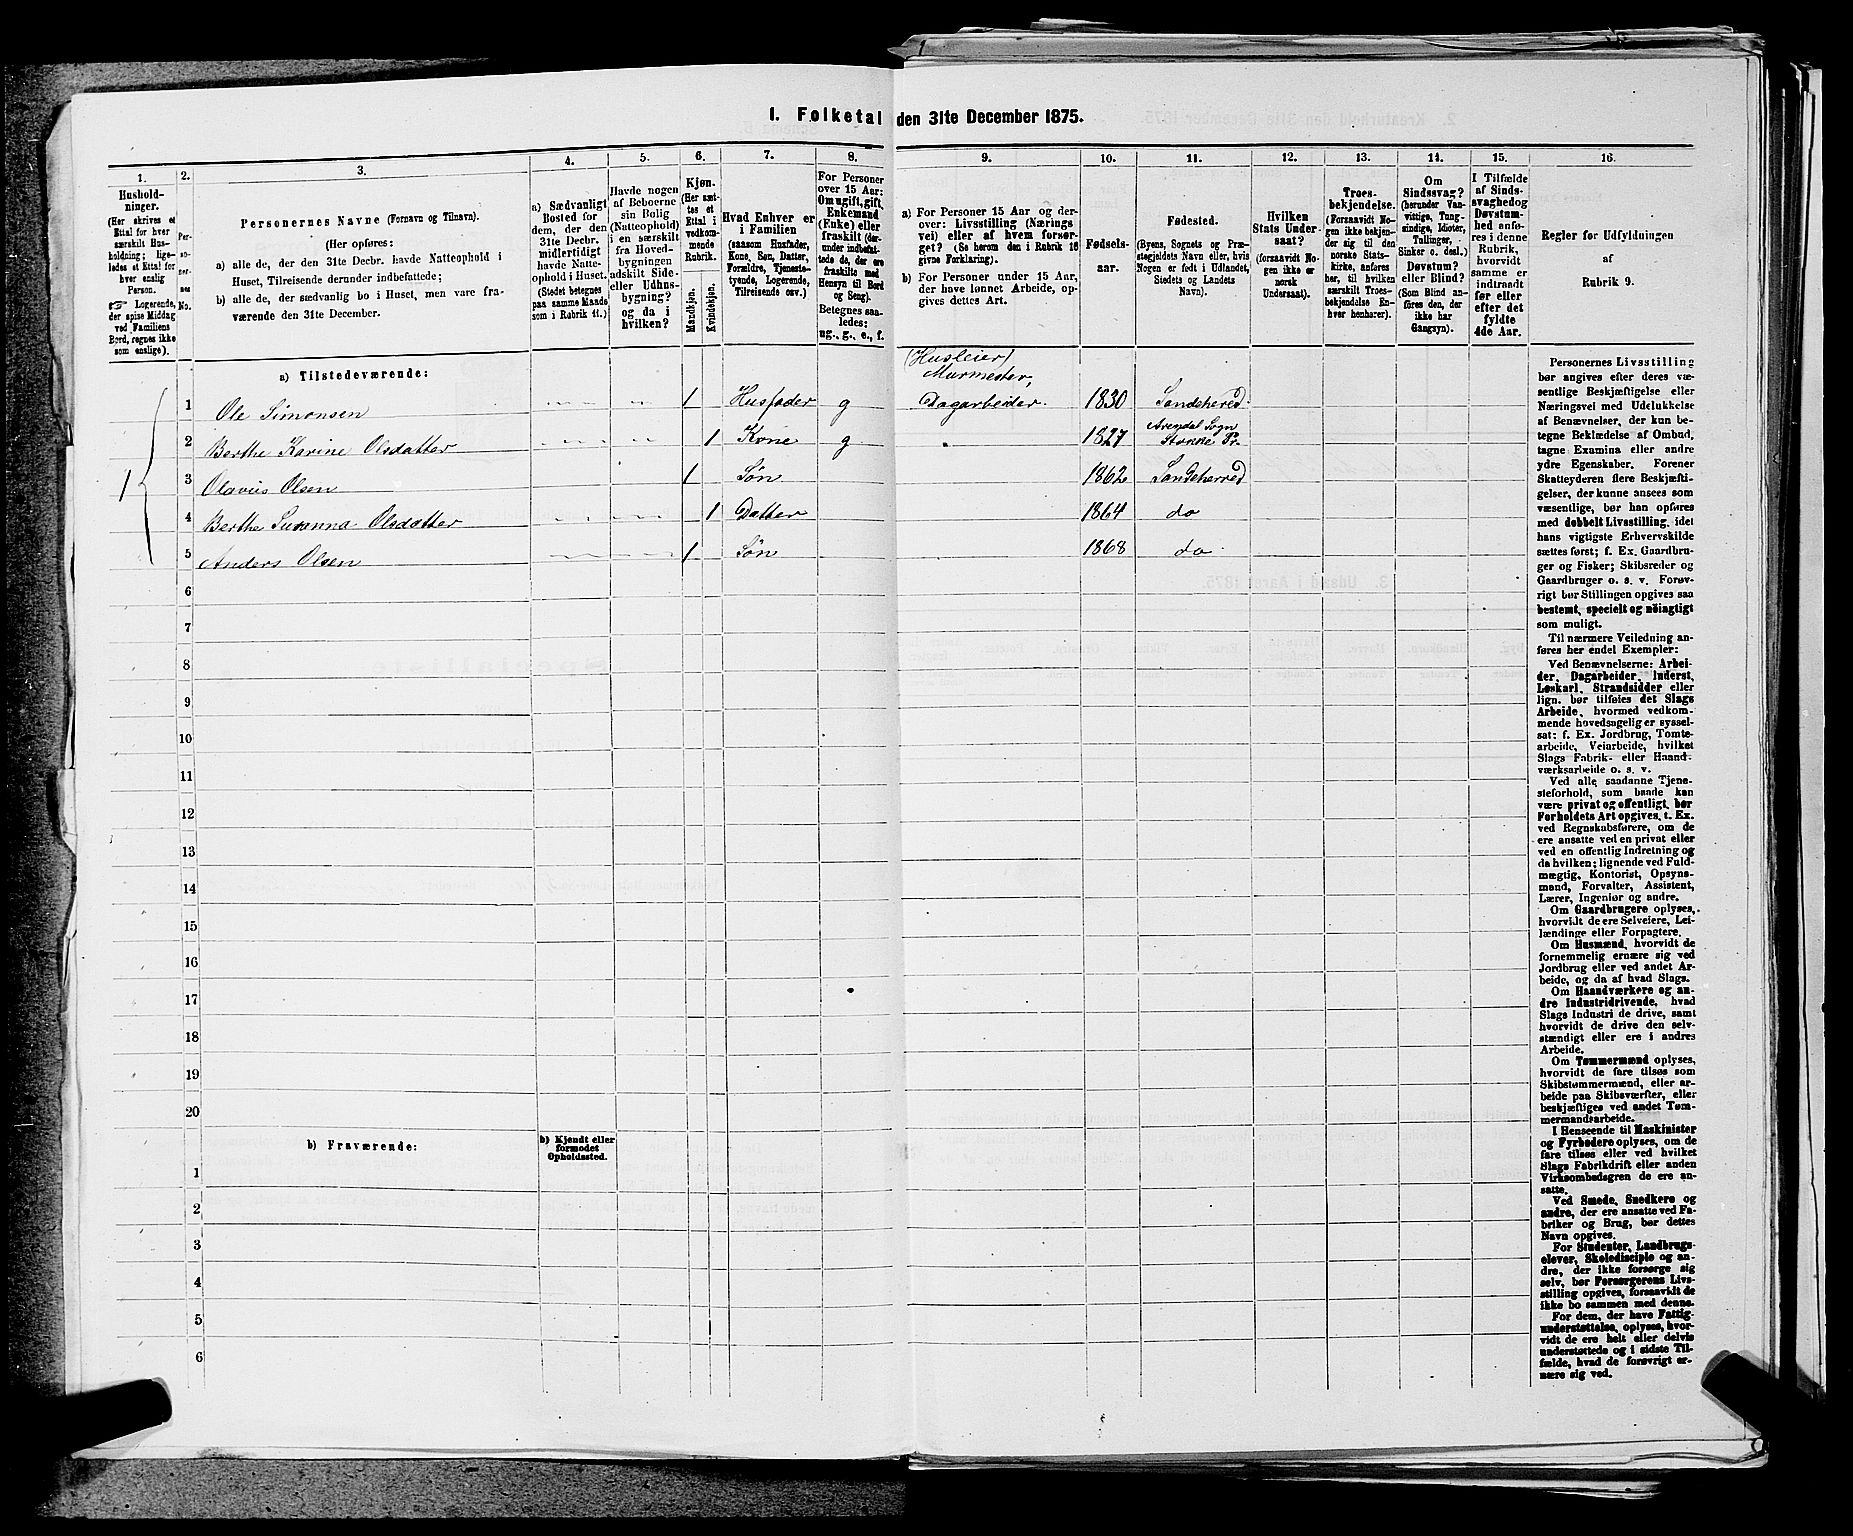 1. Folketal den 31te December 1875.
1.
Hushold-
ninger.
(Her skrives et
Ettal for hver
særskilt Hus-
holdning; lige-
ledes et Ettal for
hver enslig
Person.
Logerende,
der spise Middag
ved Familiens
Bord, regnes ikke
som enslige).
2.
Per-
so-
ner-
nes
No.
3.
Personernes Navne (Fornavn og Tilnavn).
(Her opføres:
a) alle de, der den 31te Decbr. havde Natteophold i
Huset, Tilreisende derunder indbefattede;
b) alle de, der sædvanlig bo i Huset, men vare fra-
værende den 31te December.
4.
a) Sædvanligt
Bosted for
dem, der den
31te Decbr.
midlertidigt
havde Natte-
ophold i Huset.
(Stedet betegnes
paa samme Maade
som i Rubrik 11.)
5.
Havde nogen
af Beboerne
sin Bolig
(Natteophold)
i en særskilt
fra Hoved-
bygningen
adskilt Side-
eller Udhus-
bygning?
og da i
hvilken?
6.
Kjøn.
(Her sæt-
tes et
Ettal i
vedkom-
mende
Rubrik.
Mandkjøn.
Kvindekjøn.
7.
Hvad Enhver er
i Familien
(saasom Husfader,
Kone, Søn, Datter,
Forældre, Tjeneste-
tyende, Logerende,
Tilreisende osv.)
8.
For Personer
over 15 Aar:
Om ugift, gift,
Enkemand
(Enke) eller
fraskilt (der-
under indbefat-
tede de, der ere
fraskilte med
Hensyn til Bord
og Seng).
Betegnes saa-
ledes:
ug., g., e., f.
9.
a) For Personer 15 Aar og der-
over: Livsstilling (Nærings-
vei) eller af hvem forsør-
get? (Se herom den i Rubrik 16
givne Forklaring).
b) For Personer under 15 Aar,
der have lønnet Arbeide, op-
gives dettes Art.
10.
Fødsels-
aar.
11.
Fødested.
(Byens, Sognets og Præ-
stegjeldets Navn eller, hvis
Nogen er født i Udlandet,
Stedets og Landets
Navn).
12.
Hvilken
Stats Under-
saat?
(forsaavidt No-
gen ikke er
norsk
Undersaat).
13.
Troes-
bekjendelse.
(Forsaavidt No-
gen ikke bekjen-
der sig til den
norske Stats-
kirke, anføres
her, til hvilken
særskilt Troes-
bekjendelse En-
hver henhører).
14.
Om
Sindssvag?
(herunder Van-
vittige, Tung-
sindige, Idioter,
Tullinger,
Sinker o. desl.)
Døvstum?
eller Blind?
(Som Blind an-
føres den, der
ikke har
Gangsyn).
15.
I Tilfælde
af Sinds-
svaghed og
Døvstum-
hed anfø-
res i denne
Rubrik,
hvorvidt
samme er
indtraadt
før eller
efter det
fyldte
4de Aar.
16.
Regler for Udfyldningen
af
Rubrik 9.
a) Tilstedeværende:
(Husleier)
Murmester,
1 1 Ole Simonsen 1 Husfader g Dagarbeider. 1830 Sandeherred.
2 Berthe Karine Olsdatter 1 Kone g 1827 Arendal Sogn
Stokke Pr.
3 Olavus Olsen 1 Søn 1862 Sandeherred
4 Berthe Susanna Olsdatter 1 Datter 1864 do
5 Anders Olsen 1 Søn 1868 do
6
7
8
9
10
11
12
13
14
15
16
17
18
19
20
b) Fraværende:
b) Kjendt eller
formodet
Opholdssted.
1
2
3
4
5
6
Personernes Livsstilling
bør angives efter deres væ-
sentlige Beskjæftigelse eller
Næringsvei med Udelukkelse
af Benævnelser, der kun be-
tegne Beklædelse af Ombud,
tagne Examina eller andre
ydre Egenskaber. Forener
Skatteyderen flere Beskjæfti-
gelser, der kunne ansees som
væsentlige, bør han opføres
med dobbelt Livsstilling, idet
hans vigtigste Erhvervskilde
sættes først; f. Ex. Gaardbru-
ger og Fisker; Skibsreder og
Gaardbruger o. s. v. Forøv-
rigt bør Stillingen opgives saa
bestemt, specielt og nøiagtigt
som muligt.
Til nærmere Veiledning an-
føres her endel Exempler:
Ved Benævnelserne: Arbei-
der, Dagarbeider, Inderst,
Løskarl, Strandsidder eller
lign. bør tilføies det Slags
Arbeide, hvormed vedkom-
mende hovedsagelig er syssel-
sat: f. Ex. Jordbrug, Tomte-
arbeide, Veiarbeide, hvilket
Slags Fabrik- eller Haand-
værksarbeide o. s. v.
Ved alle saadanne Tjene-
steforhold, som baade kan
være privat og offentligt, bør
Forholdets Art opgives, t. Ex.
ved Regnskabsførere, om de
ere ansatte ved en privat eller
ved en offentlig Indretning og
da hvilken; lignende ved Fuld-
mægtig, Kontorist, Opsyns-
mand, Forvalter, Assistent,
Lærer, Ingeniør og andre.
Om Gaardbrugere oplyses,
hvorvidt de ere Selveiere, Lei-
lændinge eller Forpagtere.
Om Husmænd, hvorvidt de
fornemmelig ernære sig ved
Jordbrug eller ved andet Ar-
beide, og da af hvad Slags.
Om Haandværkere og an-
dre Industridrivende, hvad
Slags Industri de drive, samt
hvorvidt de drive den selv-
stændigt eller ere i andres
Arbeide.
Om Tømmermænd oplyses,
hvorvidt de fare tilsøs som
Skibstømmermænd, eller ar-
beide paa Skibsværfter, eller
beskjæftiges ved andet Tøm-
mermandsarbeide.
I Henseende til Maskinister
og Fyrbødere oplyses, om de
fare tilsøs eller ved hvilket
Slags Fabrikdrift eller anden
Virksombedsgren de ere an-
satte.
Ved Smede, Snedkere og
andre, der ere ansatte ved Fa-
briker og Brug, bør dettes
Navn opgives.
For Studenter, Landbrugs-
elever, Skoledisciple og an-
dre, der ikke forsørge sig
selv, bør Forsørgerens Livs-
stilling opgives, forsaavidt de
ikke bo sammen med denne.
For dem, der have Fattig-
understøttelse, oplyses, hvor-
vidt de ere helt eller delvis
understøttede og i sidste Til-
fælde, hvad de forøvrigt er-
nære sig ved.